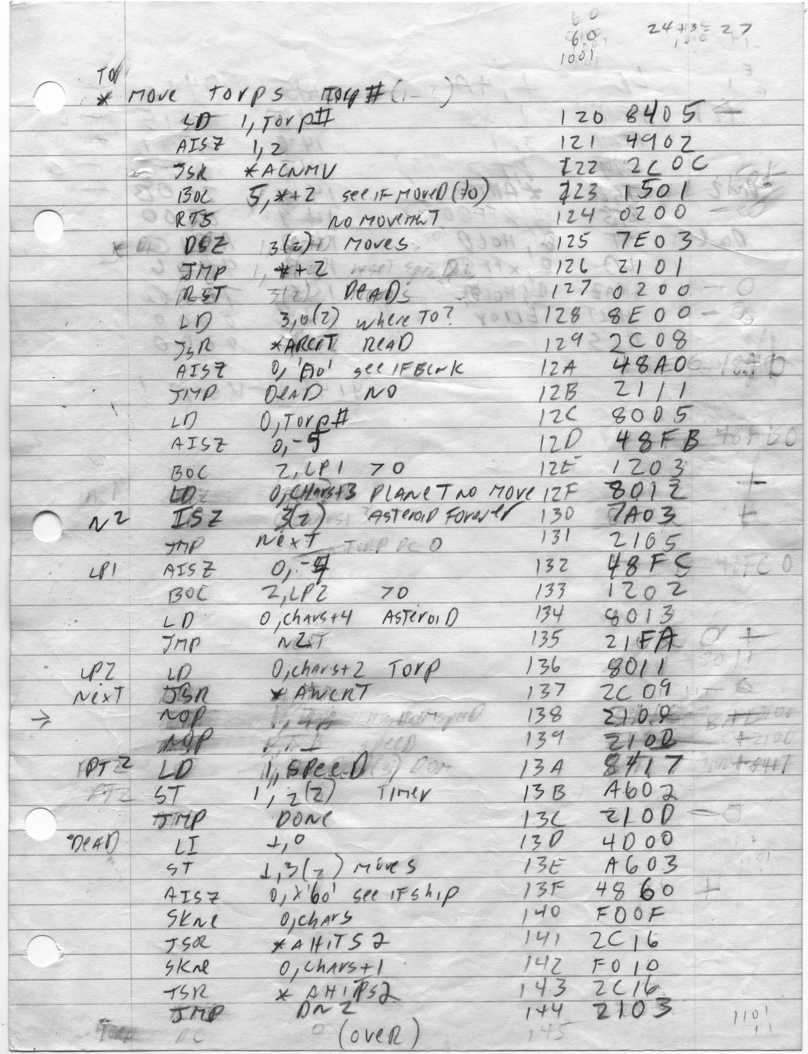 60
60 24+3=27
1001
* MOVE TORPS TORP#(1-5)
LD 1,TORP# 120 8405
AISZ 1,2 121 4902
JSR *ACNMV 122 2C0C
BOC 5,*+2 see IF MOVED(≠0) 123 1501
RTS NO MOVEMENT 124 0200
DSZ 3(2) MOVES 125 7E03
JMP *+2 126 2101
RST DEADS 127 0200
LD 3,0(2) where TO? 128 8E00
JSR *ARCRT READ 129 2C08
AISZ 0,'A0' see IF BLNK 12A 48A0
JMP DEAD NO 12B 2111
LD 0,TORP# 12C 8005
AISZ 0,-5 12D 48FB
BOC 2,LP1 >0 12E 1203
LD 0,CHARS+3 PLANET NO MOVE 12F 8012
N2 ISZ 3(2) ASTEROID Forever 130 7A03
JMP NEXT 131 2105
LP1 AISZ 0,-4 132 48FC
BOC 2,LP2 >0 133 1202
LD 0,chars+4 ASTEROID 134 8013
JMP N2 135 21FA
LP2 LD 0,chars+2 TORP 136 8011
NEXT JSR *AWCRT 137 2C09
→ NOP 138
NOP 139
PTZ LD 1,SPEED 13A 8417
ST 1,2(2) TIMER 13B A602
JMP DONE 13C 210D
DEAD LI 1,0 13D 4D00
ST 1,3(2) MOVES 13E A603
AISZ 0,X'60' see IF ship 13F 4860
SKNE 0,CHARS 140 F00F
JSR *AHITS2 141 2C16
SKNE 0,CHARS+1 142 F010
JSR *AHIPS2 143 2C16
JMP DN2 144 2103
(OVER) 145